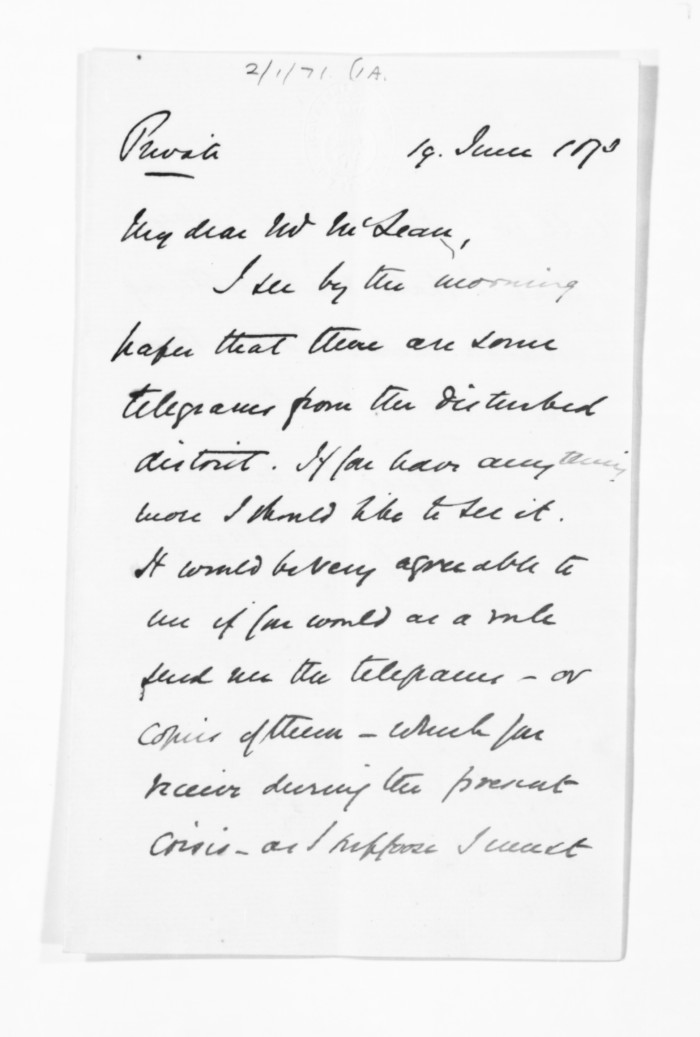 2/1/71. (1A.
Private
19. June 1873
My dear Mr McLean,
I see by the morning
paper that there are some
telegrams from the disturbed
district. If you have anything
more I should like to see it.
It would be very agreeable to
me if you would as a rule
send me the telegrams - or
copies of them - which you
receive during the present
crisis - as I suppose I must